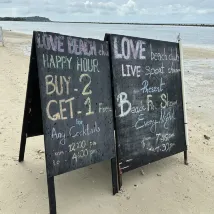 LOVE BEACH
HAPPY HOUR
BUY - 2
GET - 1 Free
For
Any Cocktails
12:00
4:00
LOVE beach club
LIVE sport
Present
Beach Fire Show
Every Night
7:45